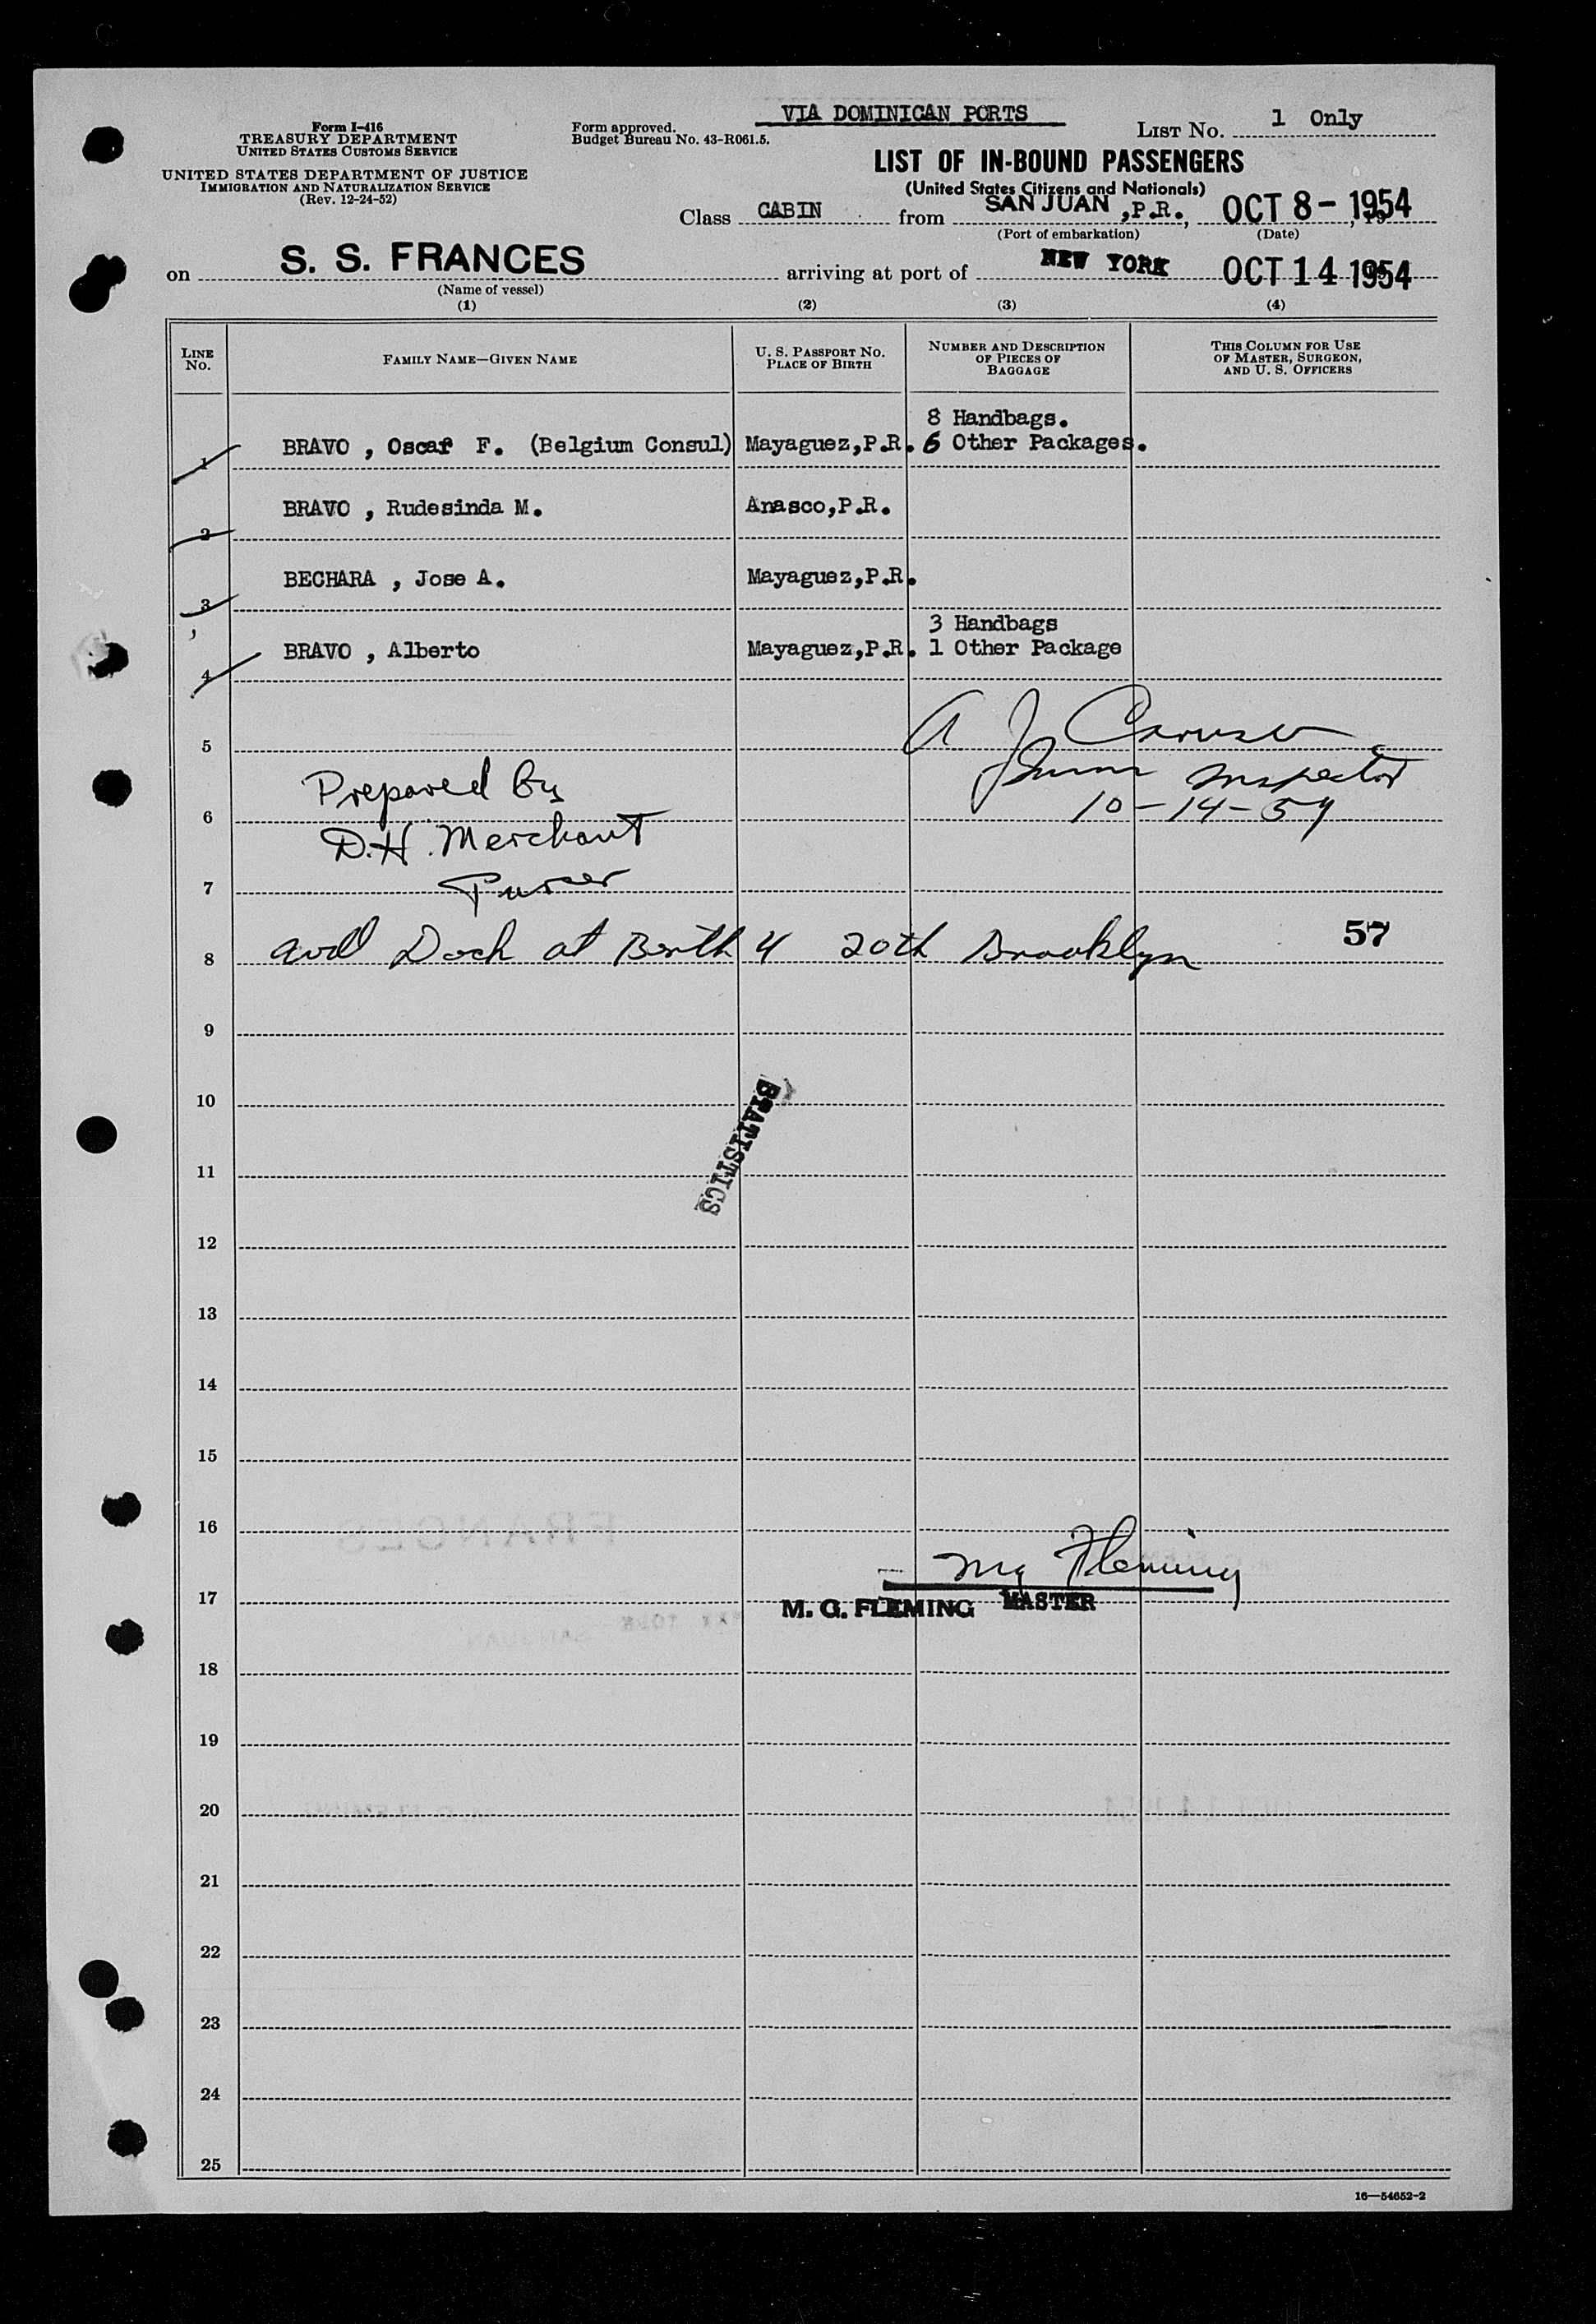 VIA DOMINICAN PORTS
Form I-416
TREASURY DEPARTMENT
UNITED STATES CUSTOMS SERVICE
UNITED STATES DEPARTMENT OF JUSTICE
IMMIGRATION AND NATURALIZATION SERVICE
(Rev. 12-24-52)
Form approved.
Budget Bureau No. 43-R061.5.
LIST No. 1 Only
LIST OF IN-BOUND PASSENGERS
(United States Citizens and Nationals)
Class CABIN from SAN JUAN ,P.R., OCT 8 - 1954
(Port of embarkation) (Date)
on S. S. FRANCES arriving at port of NEW YORK OCT 14 1954
(Name of vessel)
(1) (2) (3) (4)
LINE No. FAMILY NAME—GIVEN NAME U. S. PASSPORT NO. PLACE OF BIRTH NUMBER AND DESCRIPTION OF PIECES OF BAGGAGE THIS COLUMN FOR USE OF MASTER, SURGEON, AND U. S. OFFICERS
8 Handbags.
1 BRAVO , Oscar F. (Belgium Consul) Mayaguez,P.R. 6 Other Packages.
2 BRAVO , Rudesinda M. Anasco,P.R.
3 BECHARA , Jose A. Mayaguez,P.R.
3 Handbags
4 BRAVO , Alberto Mayaguez,P.R. 1 Other Package
A J Caruso
5
Inspector
Prepared by
10-14-54
6
D.H. Merchant
7 Purser
57
8 Dock at Berth 4 20th Brooklyn
9
10
STATISTICS
11
12
13
14
15
16
FRANCES
M G Fleming
17 M. G. FLEMING MASTER
18
19
20
21
22
23
24
25
16—54652-2